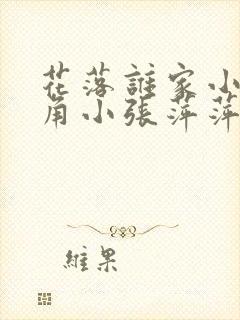 花落誰家小
角小張萍萍
維果